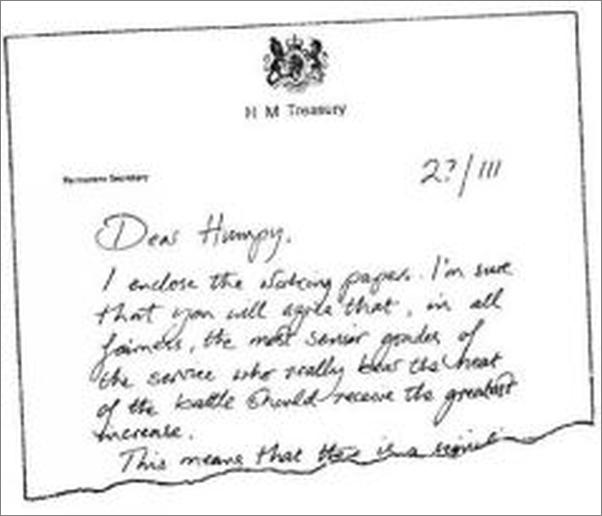 H M Treasury
Permanent Secretary
2?/III
Dear Humpy,
I enclose the working paper. I'm sure
that you will agree that, in all
fairness, the most senior grades of
the service who really bear the heat
of the battle should receive the greatest
increase.
This means that there is a